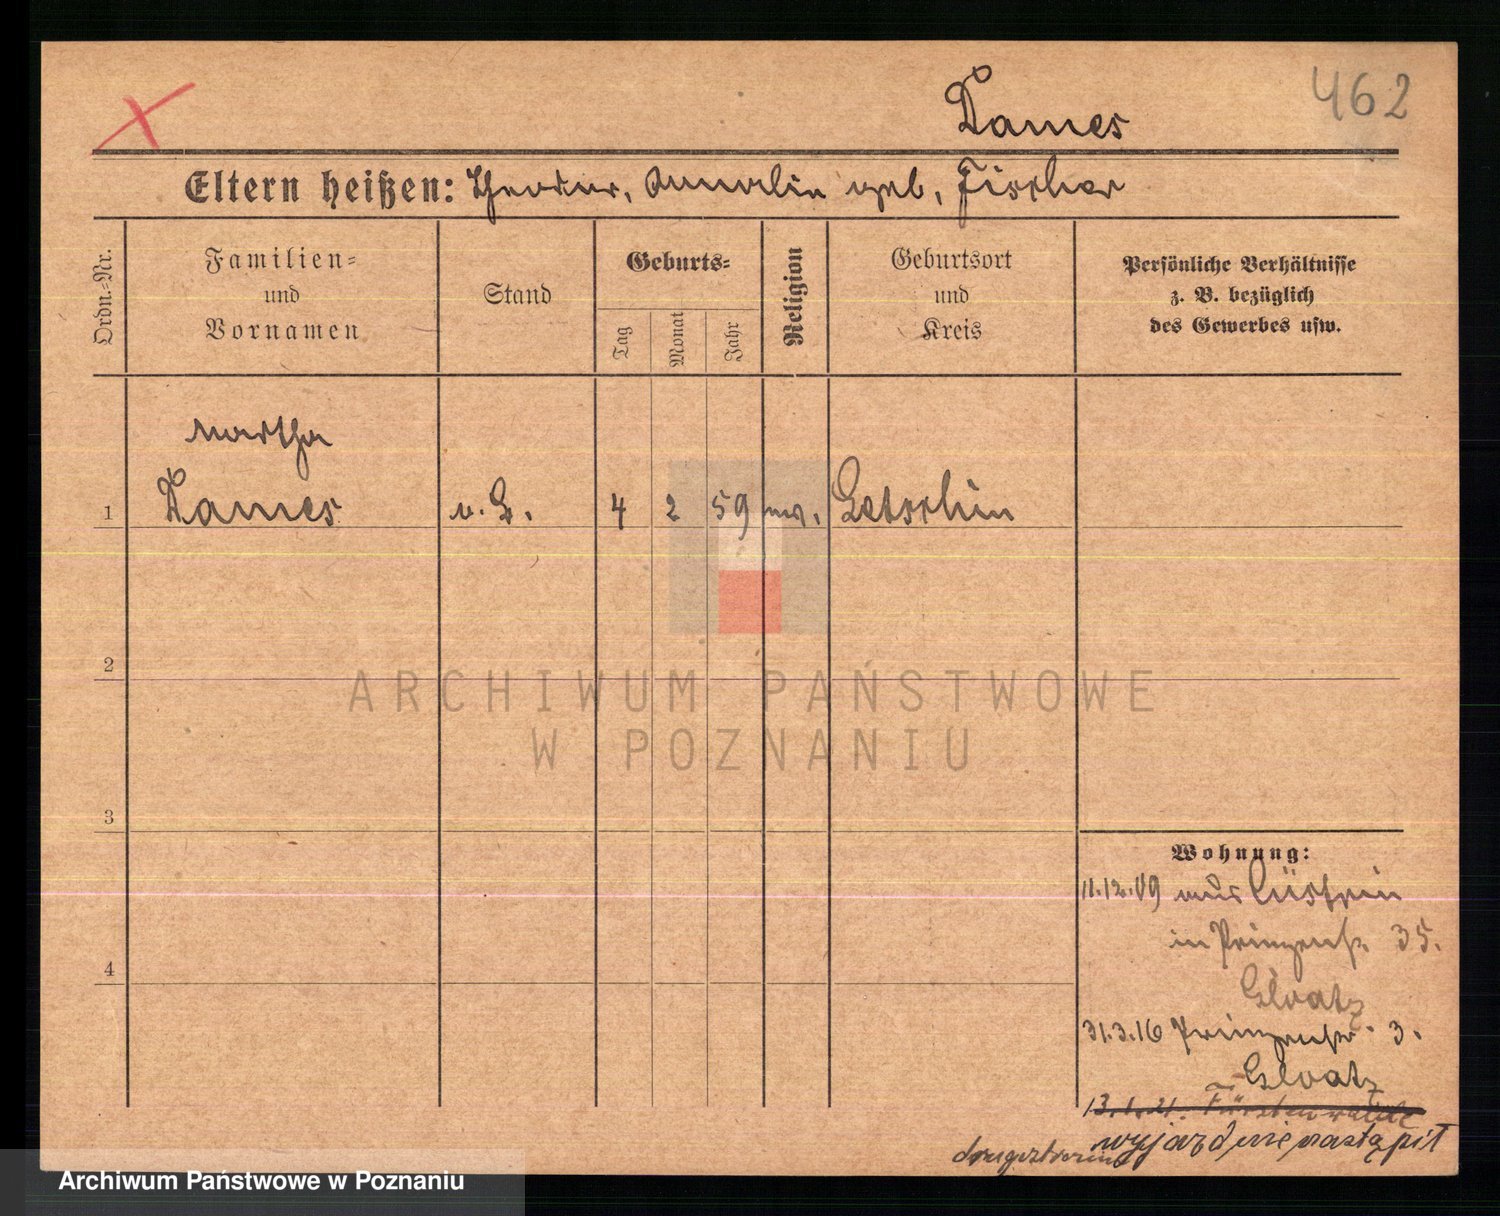 462
Dames
Eltern heißen: Theodor, Amalie geb. Fischer
Ordn.-Nr.
Familien-
und
Vornamen
Stand
Geburts-
Tag
Monat
Jahr
Religion
Geburtsort
und
Kreis
Persönliche Verhältnisse
z. B. bezüglich
des Gewerbes usw.
Martha
1 Dames o. G. 4 2 59 ev. Letschin
2
3
4
ARCHIWUM PAŃSTWOWE
W POZNANIU
Wohnung:
11.12.09 aus Cüstrin
in Prinzenstr. 35.
Gloatz
31.3.16 Prinzenstr. 3.
Gloatz
13.1.21. Fürstenwalde
wyjazd nie nastąpił
Archiwum Państwowe w Poznaniu